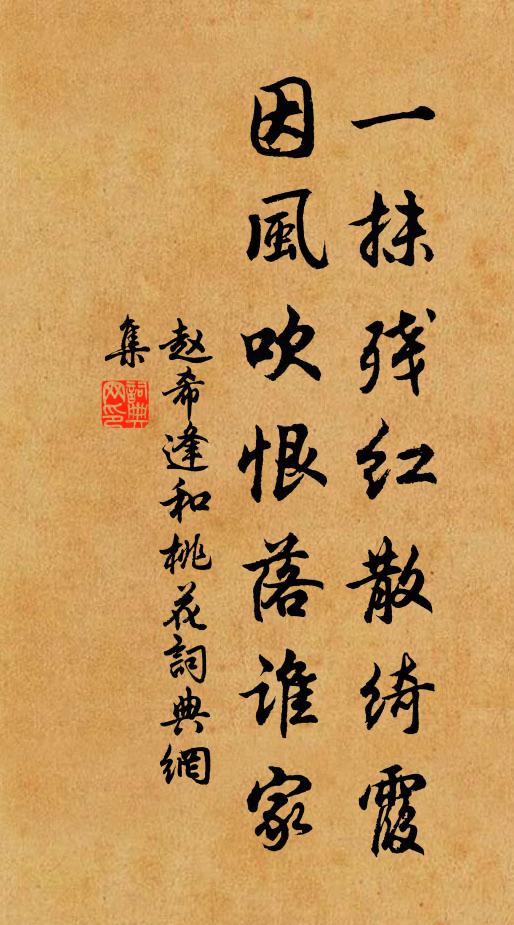 一抹残红散绮霞
因風吹恨落谁家
赵希逢和桃花詞典網
集
詞典
网印